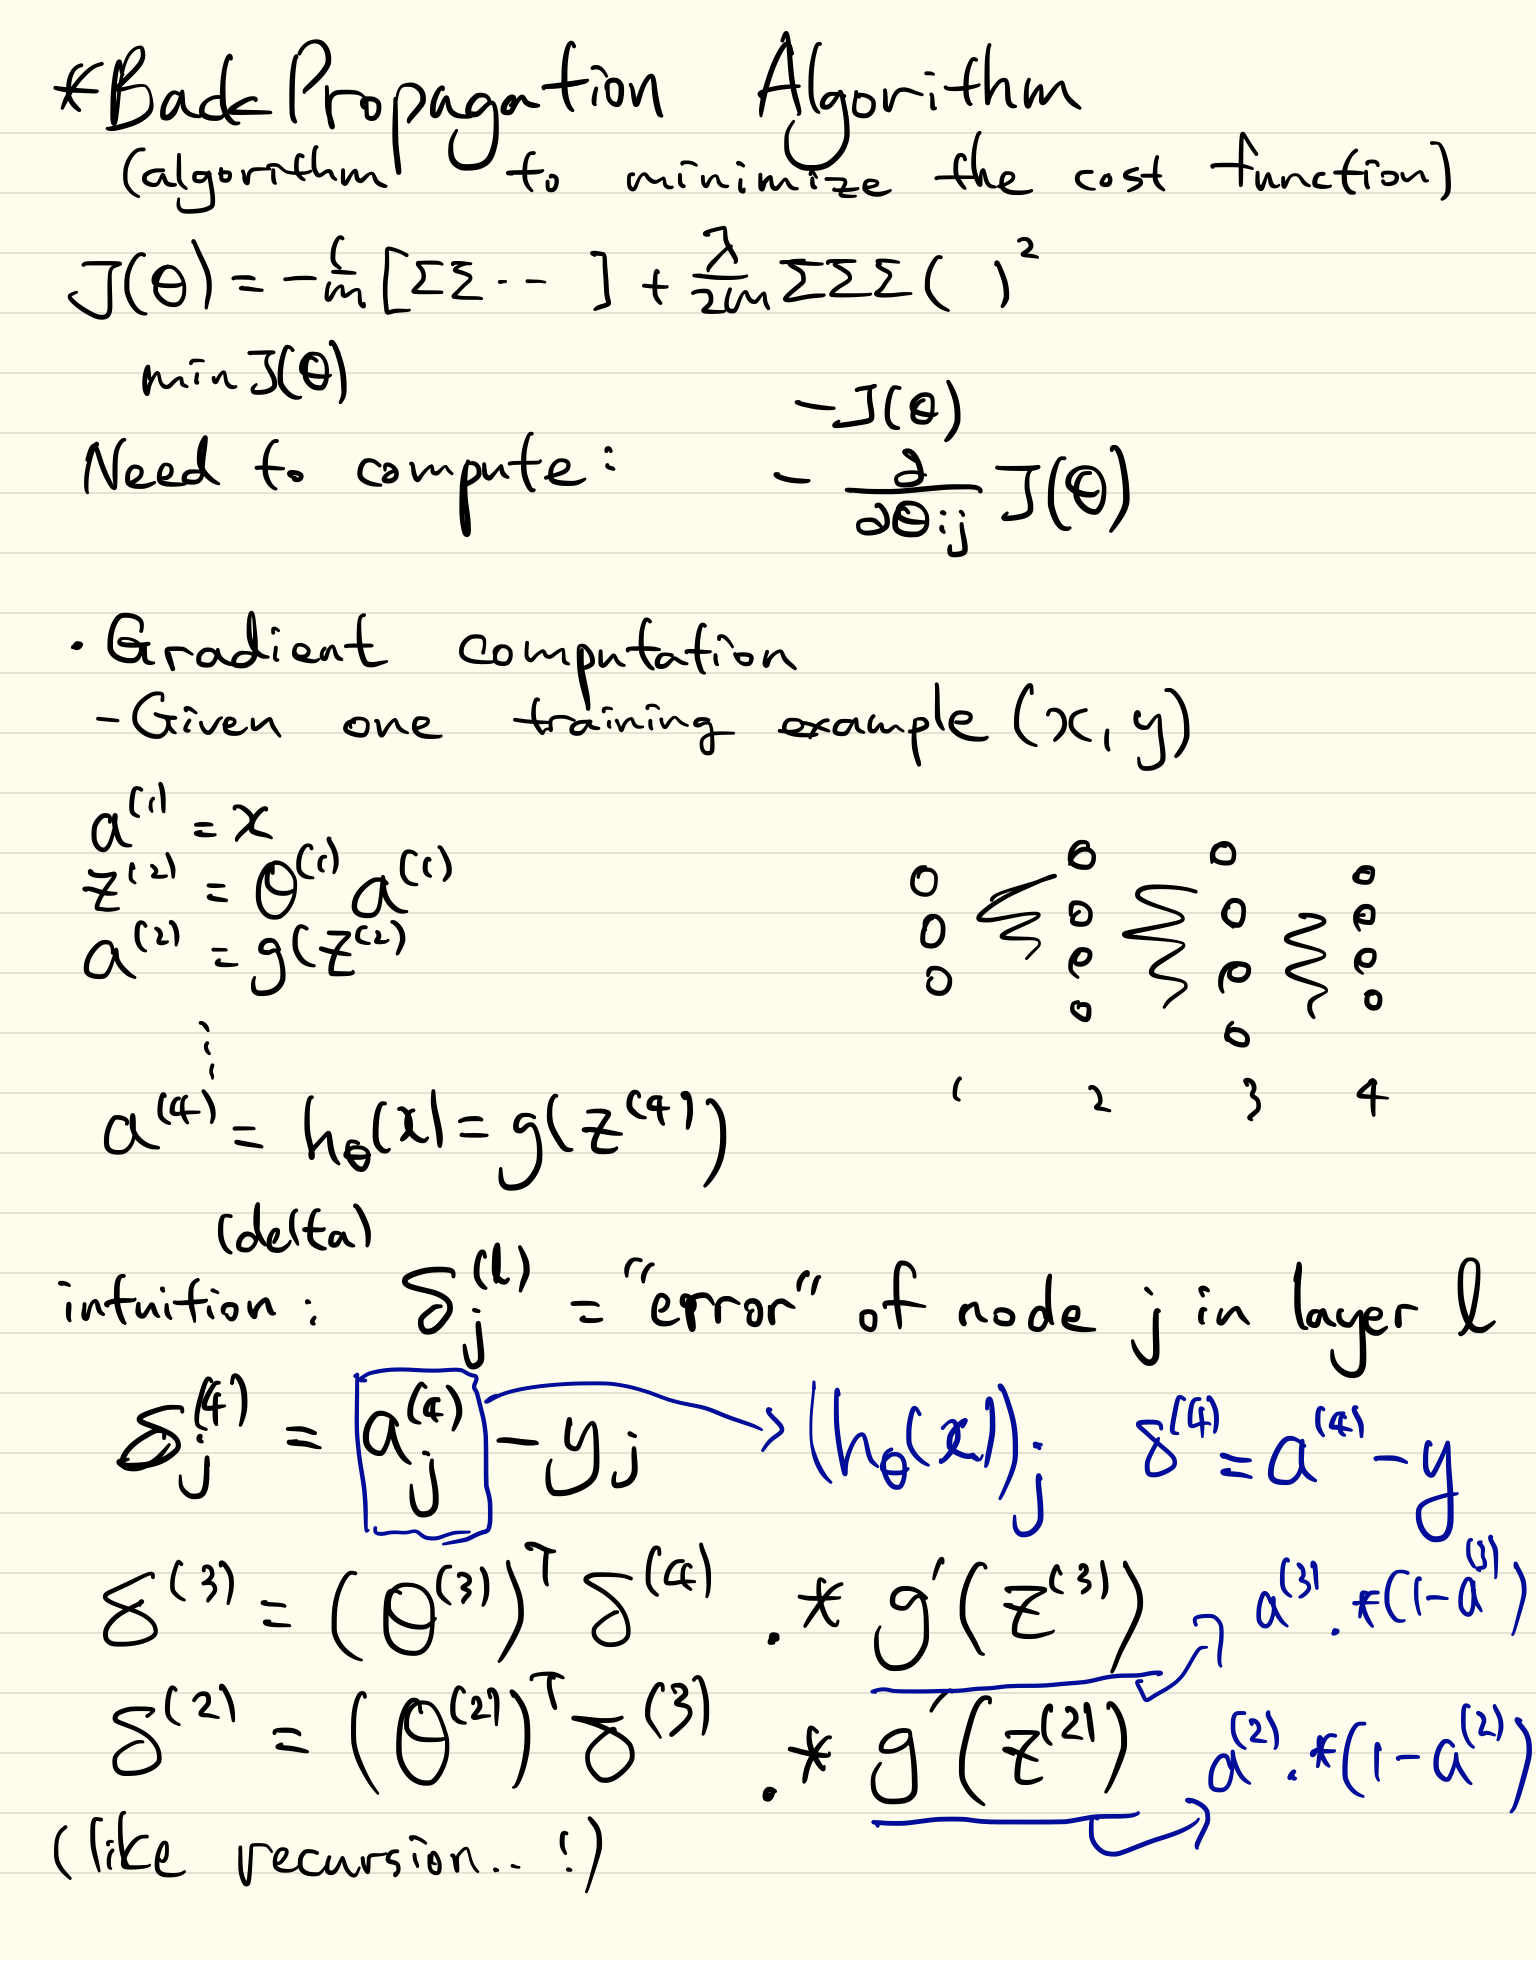 *Back Propagation Algorithm
(algorithm to minimize the cost function)
J(θ) = -1/m [ΣΣ··-- ] + λ/2m ΣΣΣ( )²
min J(θ)
- J(θ)
Need to compute: - ∂/∂θij J(θ)
· Gradient computation
- Given one training example (x, y)
a^(1) = x
z^(2) = θ^(1) a^(1)
a^(2) = g(z^(2)
⋮
1 2 3 4
a^(4) = hθ(x) = g(z^(4))
(delta)
intuition: δj^(l) = "error" of node j in layer l
δj^(4) = aj^(4) - yj → (hθ(x))j δ^(4) = a^(4) - y
δ^(3) = (θ^(3))^T δ^(4) .* g'(z^(3)) → a^(3) .* (1-a^(3))
δ^(2) = (θ^(2))^T δ^(3) .* g'(z^(2)) → a^(2) .* (1-a^(2))
(like recursion.. !)